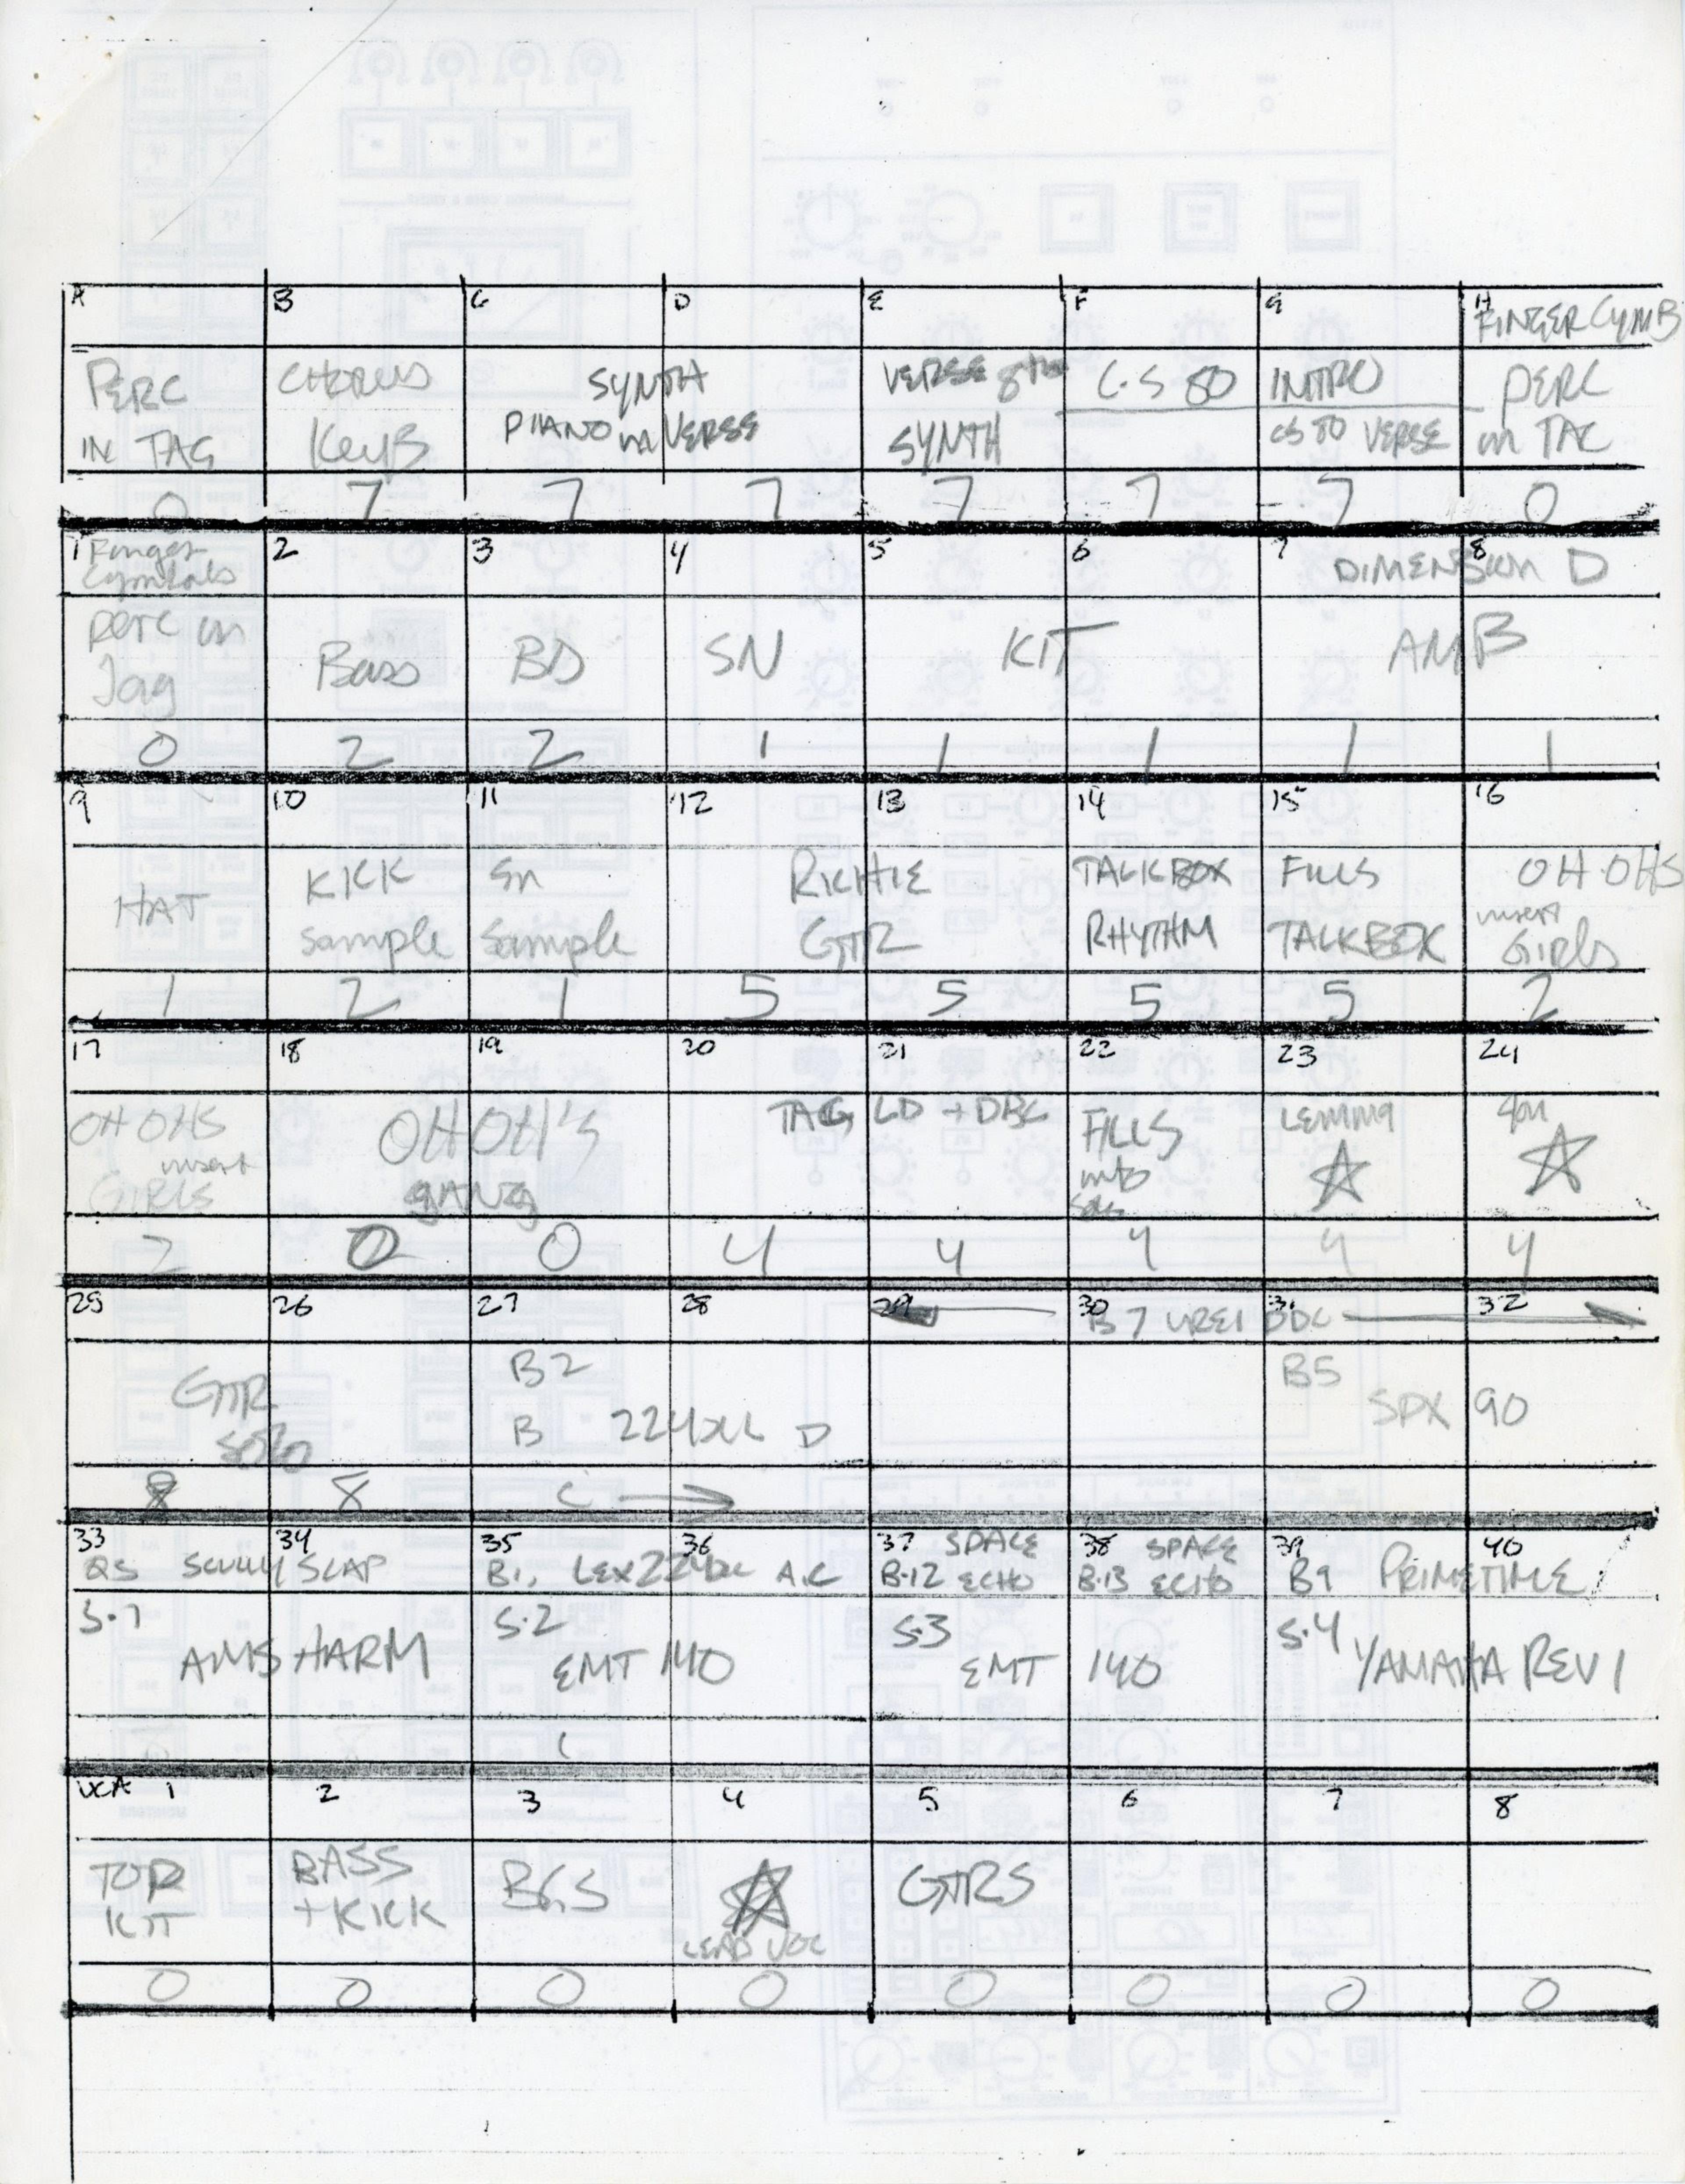 A B C D E F G H
FINGER CYMB
PERC IN TAG
CHORUS KEYB
SYNTH PIANO IN VERSE
VERSE 8ths SYNTH
CS 80
INTRO
CS 80 VERSE
PERC IN TAG
0 7 7 7 7 7 7 0
1 2 3 4 5 6 7 8
Finger Cymbals
DIMENSION D
perc in Tag
Bass
BD
SN
KIT
AMB
0 2 2 1 1 1 1 1
9 10 11 12 13 14 15 16
HAT
KICK sample
Sn Sample
RICHIE GTR
TALKBOX RHYTHM
FILLS TALKBOX
OH OHS insert GIRLS
1 2 1 5 5 5 5 2
17 18 19 20 21 22 23 24
OH OHS insert GIRLS
OH OH'S GANG
TAG LD + DBL
FILLS into Solo
LEMMA
2 0 0 4 4 4 4 4
25 26 27 28 29 30 31 32
B7 UREI DDL
GTR SOLO
B2
B 224XL D
B5
SPX 90
8 8 C
33 34 35 36 37 38 39 40
SCULLY SLAP
B1, LEX 224XL A.C
B.12 SPACE ECHO
B.13 SPACE ECHO
B9 PRIMETIME
S.1 AMS HARM
S.2 EMT 140
S.3 EMT 140
S.4 YAMAHA REV 1
VCA 1 2 3 4 5 6 7 8
TOP KIT
BASS + KICK
BGS
LEAD VOC
GTRS
0 0 0 0 0 0 0 0